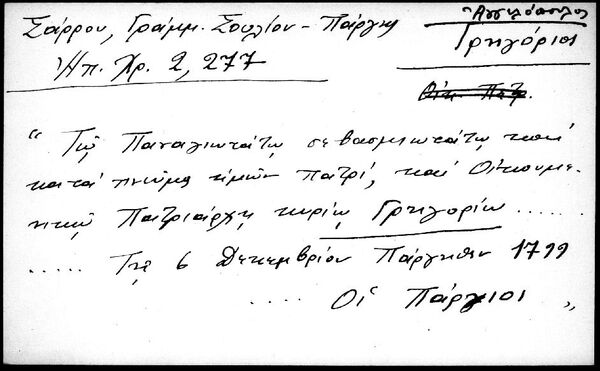 Σάρρου, Γράμμ. Σουλίου - Πάργης
Ἠπ. Χρ. 2, 277
Ἀγγελόπουλος
Γρηγόριος
Οἰκ. Πατρ.
"Τῷ Παναγιωτάτῳ σεβασμιωτάτῳ καὶ
κατὰ πνεῦμα ἡμῶν πατρί, καὶ Οἰκουμε-
νικῷ Πατριάρχῃ κυρίῳ Γρηγορίῳ ......
..... Τῇ 6 Δεκεμβρίου Πάργηθεν 1799
.... Οἱ Πάργιοι "